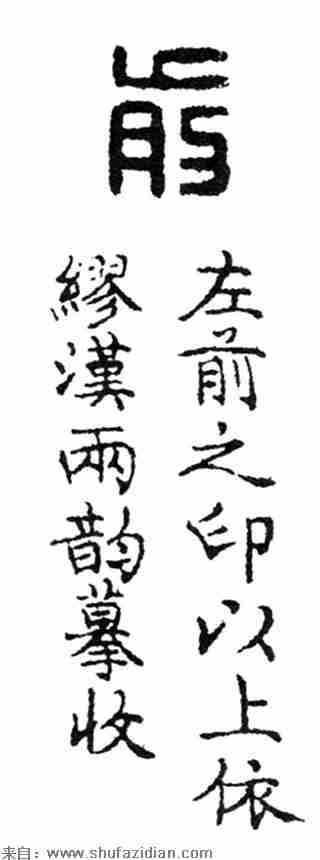 前
左前之印以上依
繆漢兩韵摹收
来自：www.shufazidian.com